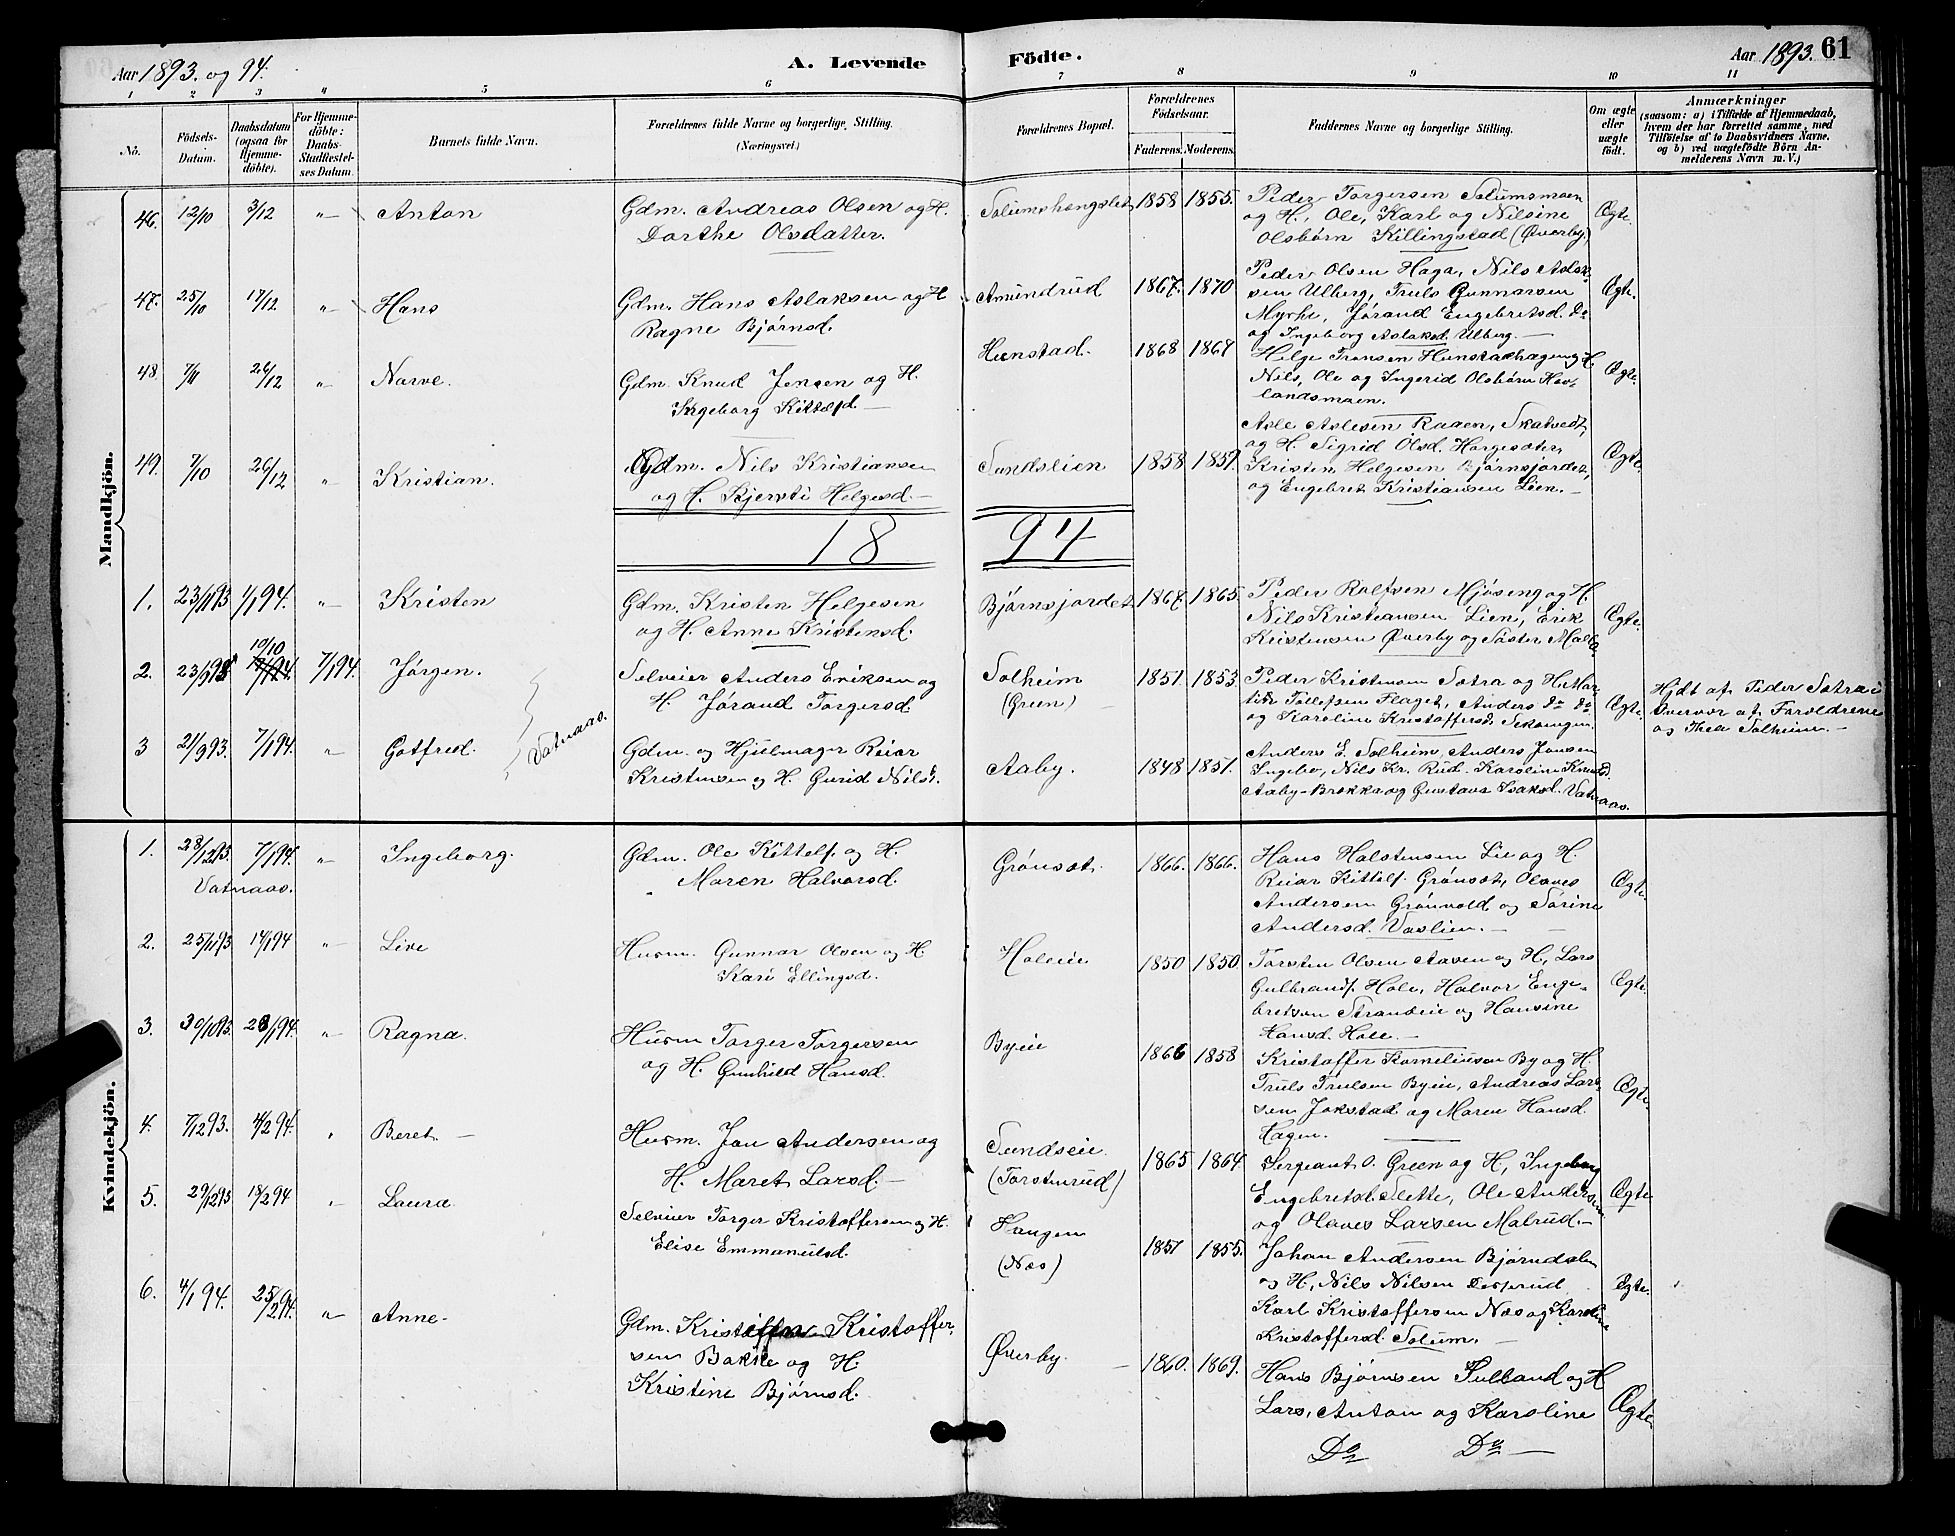 Aar 1893. og 94.
A. Levende
Födte.
Aar 1893. 61
1 2 3 4 5 6 7 8 9 10 11
No.
Födsels-
Datum.
Daabsdatum
(ogsaa for
Hjemme-
döbte).
For Hjemme-
döbte:
Daabs-
Stadfæstel-
ses Datum.
Barnets fulde Navn.
Forældrenes fulde Navne og borgerlige Stilling.
(Næringsvei.)
Forældrenes Bopæl.
Forældrenes
Födselsaar.
Faderens. Moderens.
Faddernes Navne og borgerlige Stilling.
Om ægte
eller
uægte
födt.
Anmærkninger
(saasom: a) i Tilfælde af Hjemmedaab,
hvem der har forrettet samme, med
Tilföielse af to Daabsvidners Navne.
og b) ved uægtefödte Börn An-
melderens Navn m. V.)
Mandkjön.
46. 12/10 3/12 " Anton
Gdm. Andreas Olsen og H.
Dorthe Olsdatter.
Solumshengslet 1858 1855.
Peder Torgersen Solumsmoen
og H., Ole, Karl og Nilsine
Olsbørn Killingstad (Øverby)
Ægte.
47. 25/10 17/12 " Hans
Gdm. Hans Aslaksen og H
Ragne Bjørnsd.
Amundrud 1867. 1870
Peder Olsen Haga, Nils Aslak-
sen Ulberg, Truls Gunnarsen
Myrhe, Jørand Engebretsd. Do
og Ingeborg Aslaksd. Ulberg.
Ægte.
48. 7/11 26/12 " Narve.
Gdm. Knud Jensen og H.
Ingeborg Kittelsd.
Hunstad. 1868 1867
Helge Fransen Hunstadhagen og H.
Nils, Ole og Ingerid Olsbørn Hov-
landsmoen.
Ægte.
49. 7/10 26/12 " Kristian.
Gdm. Nils Kristiansen
og H. Kjersti Helgesd.
Sundslien 1858 1857.
Asle Aslesen Raaen, Skatvedt,
og H. Sigrid Olsd. Horgesæter,
Kristen Helgesen Bjørnsjordet,
og Engebret Kristiansen Lien.
Ægte.
18 94
1. 23/11 93 1/1 94. " Kristen
Gdm. Kristen Helgesen
og H. Anne Kristensd.
Bjørnsjordet 1867. 1865.
Peder Rolfsen Mjøseng og H.
Nils Kristiansen Lien, Erik
Kristensen Øverby og Søster Malla.
Ægte.
2. 23/9 93 10/10 7/1 94. Jørgen.
Selveier Anders Eriksen og
H. Jørand Torgersd.
Solheim
(Green)
1851. 1853.
Peder Kristensen Sætra og H. Mar-
tin Tollefsen Flaget, Anders Do Do
og Karoline Kristoffersd.
Ægte.
Hjdt af Peder Sætra i
Overvær af Forældrene
og Thea Solheim.
3 21/9 93. 7/1 94. " Gotfred.
Vatnaas.
Gdm. og Hjulmager Reiar
Kristensen og H. Gurid Nilsd.
Aaby. 1848 1851.
Anders E. Solheim, Anders Jonsen
Ingebo, Nils Kr. Rud. Karoline Knudsd.
Aaby-Brekka og Gustava Isaksd. Vatnaas.
Kvindekjön.
1. 28/12 93. 7/1 94. " Ingeborg.
Vatnaas.
Gdm. Ole Kittels. og H.
Maren Halvorsd.
Grønset. 1866. 1866.
Hans Halstensen Lie og H.
Reiar Kittels. Grønset, Olaves
Andersen Grønvold og Sørine
Andersd. Vaslien.
Ægte.
2. 25/11 93 14/1 94 " Live
Husm. Gunnar Olsen og H
Kari Ellingsd.
Holeeie 1850 1850.
Torsten Olsen Aaven og H, Lars
Gulbrands. Hole, Halvor Enge-
bretsen Strandeie og Hansine
Hansd. Hole.
Ægte.
3. 30/10 93. 28/1 94. " Ragna.
Husm Torger Torgersen
og H. Gunhild Hansd.
Byeie 1866 1858
Kristoffer Korneliusen By og H.
Truls Trulsen Byeie, Andreas Lars-
sen Jokstad og Maren Hansd.
Hagen.
Ægte.
4. 7/12 93. 4/2 94. " Beret.
Husm. Jan Andersen og
H. Maret Larsd.
Sundseie
(Torstenrud)
1865 1864.
Sergeant O. Green og H, Ingeborg
Engebretsd. Slette, Ole Andersen
og Olaves Larsen Malrud.
Ægte
5. 29/12 93 18/2 94 " Laura.
Selveier Torger Kristoffersen og H.
Elise Emmanuelsd.
Haugen
(Næs)
1851 1855.
Johan Andersen Bjørndalen
og H, Nils Nilsen Desprud
Karl Kristoffersen Næs og Karoline
Kristoffersd. Solum.
Ægte.
6. 4/1 94. 25/2 94. " Anne.
Gdm. Kristoffer Kristoffer-
sen Bakke og H.
Kristine Bjørnsd.
Øverby. 1860. 1869.
Hans Bjørnsen Tulland og H
Lars, Anton og Karoline
Do Do
Ægte